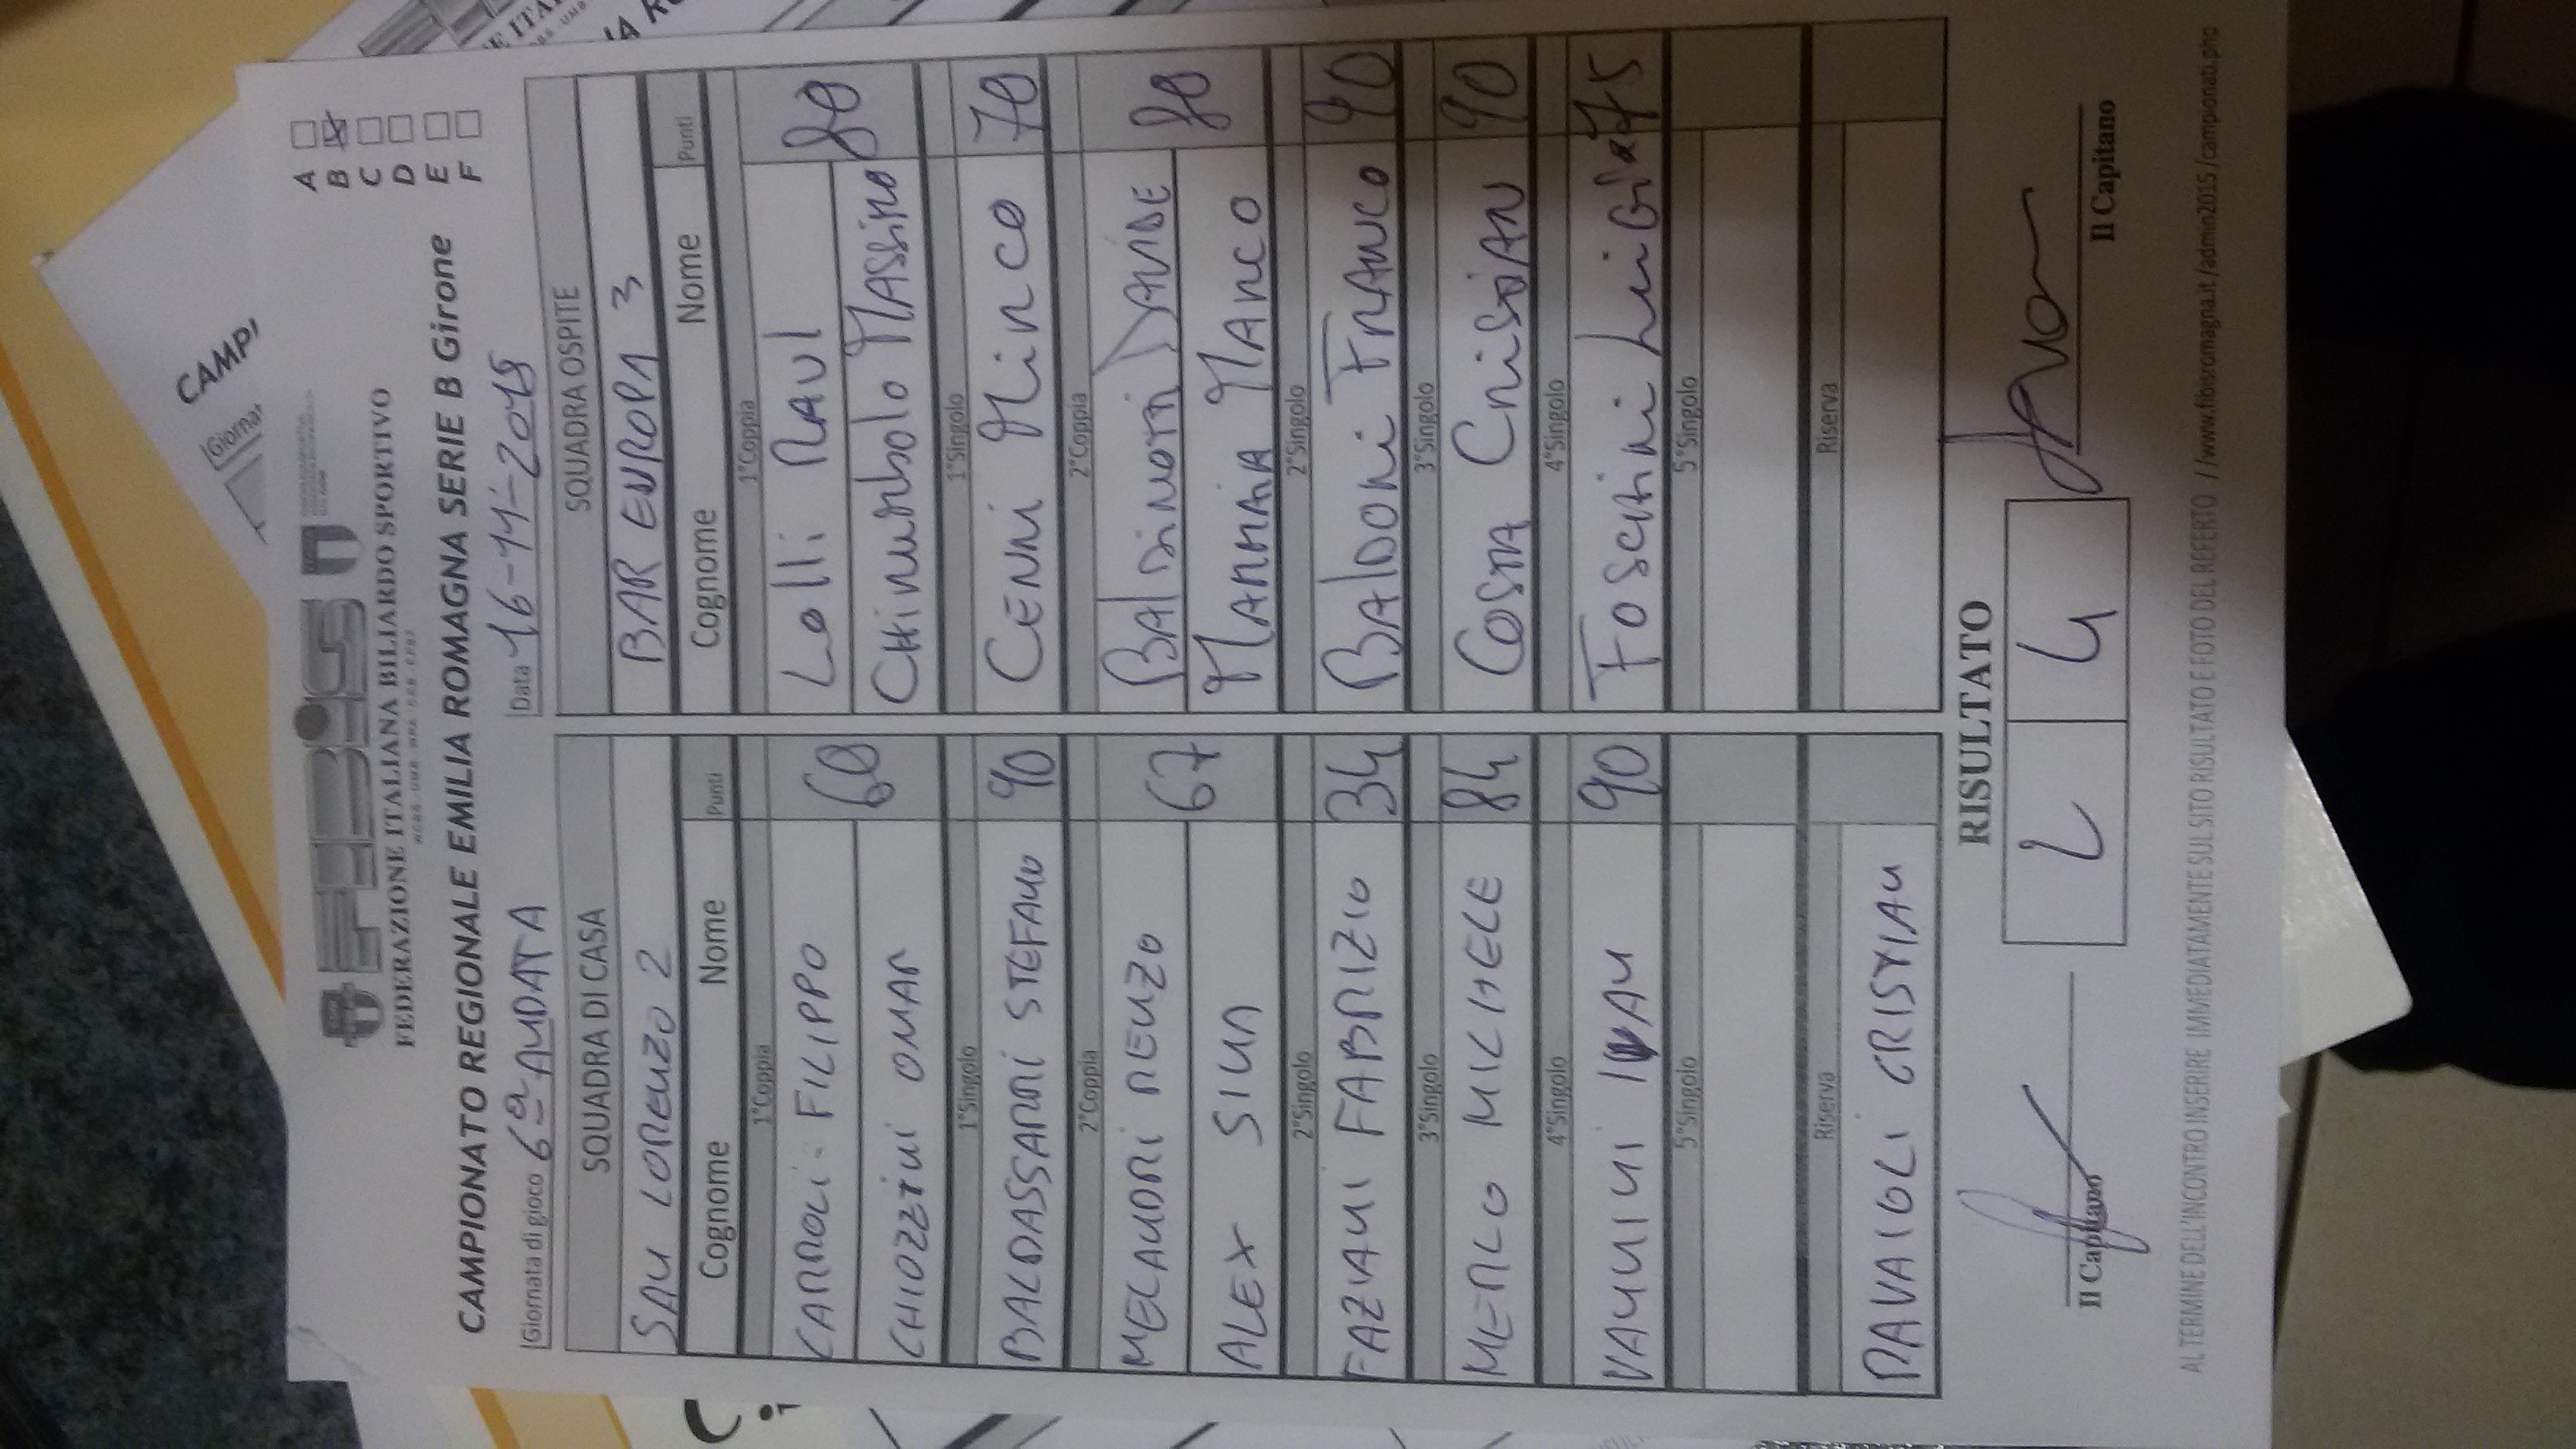 FEDERAZIONE ITALIANA BILIARDO SPORTIVO
CAMPIONATO REGIONALE EMILIA ROMAGNA SERIE B Girone
A
B
C
D
E
F
Giornata di gioco 6ª ANDATA
Data 16-11-2018
SQUADRA DI CASA
SAN LORENZO 2
Cognome Nome Punti
1°Coppia
CARROLI FILIPPO
CHIOZZINI OMAR
60
1°Singolo
BALDASSARRI STEFANO 90
2°Coppia
MELANDRI RENZO
ALEX SIUR
67
2°Singolo
FAZIANI FABRIZIO 34
3°Singolo
MERLO MICHELE 84
4°Singolo
VANNINI IVAN 90
5°Singolo
Riserva
RAVAIOLI CRISTIAN
SQUADRA OSPITE
BAR EUROPA 3
Cognome Nome Punti
1°Coppia
Lolli RAUL
CHiumbolo MASSimo
80
1°Singolo
CENNi Mirco 70
2°Coppia
BALDinoTTi DAViDE
MARRiA MARCO
80
2°Singolo
BALDONi FRANCO 90
3°Singolo
COSTA CRiSTiAN 90
4°Singolo
FOSCHini LuiGi 75
5°Singolo
Riserva
RISULTATO
2 4
Il Capitano
Il Capitano
AL TERMINE DELL'INCONTRO INSERIRE IMMEDIATAMENTE SUL SITO RISULTATO E FOTO DEL REFERTO //www.fibisromagna.it/admin2015/campionati.php
CAMPI
Giorna